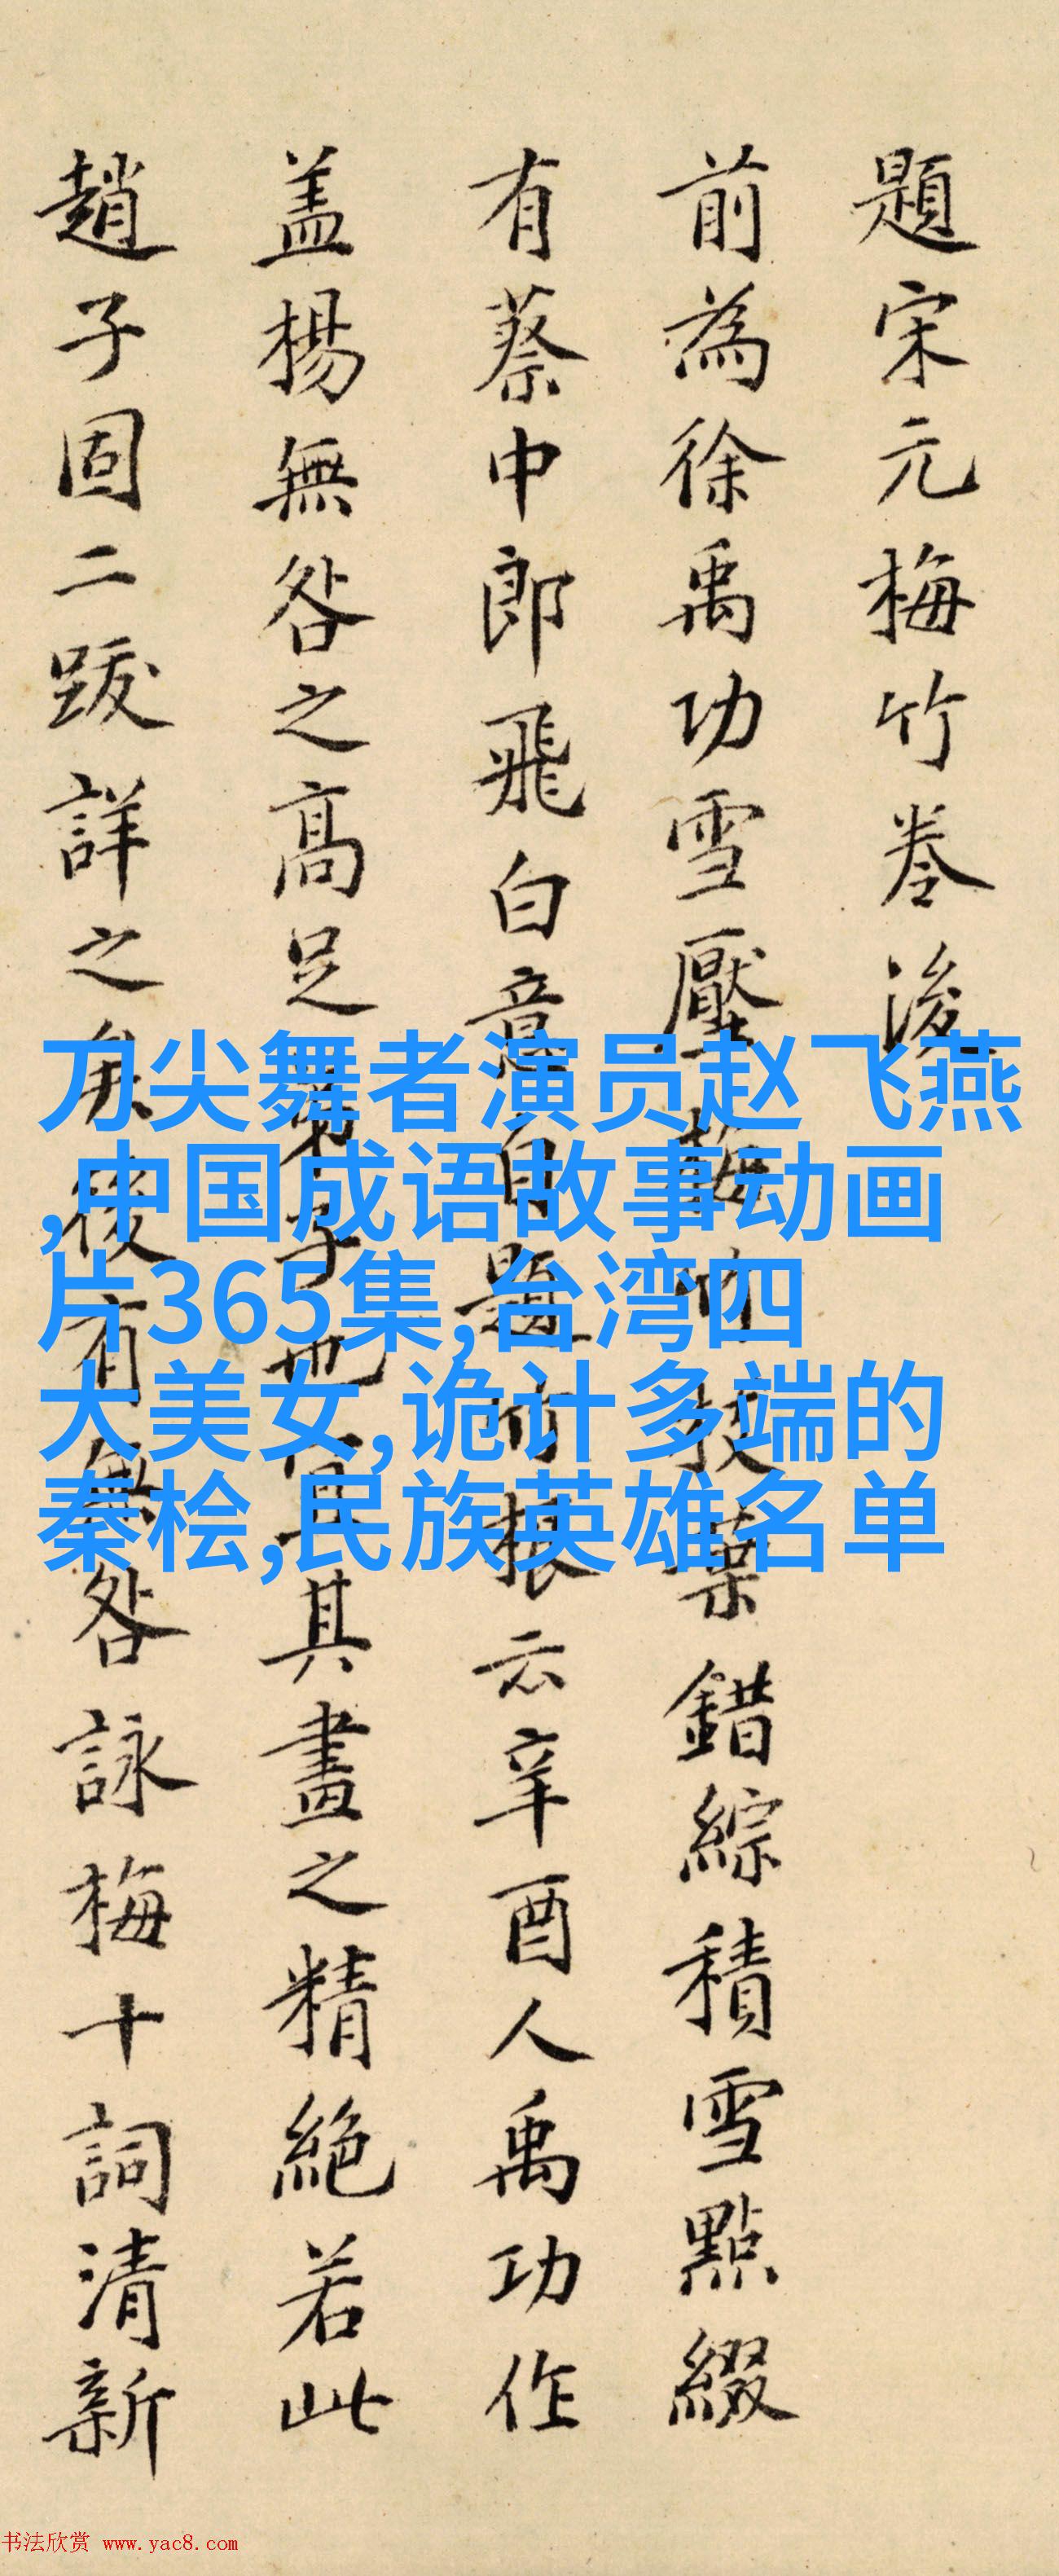 題宋元梅竹卷後
前為徐禹功雪壓梅竹枝葉錯綜積雪點綴
有蔡中郎飛白意自題竹根云辛酉人禹功作
盖楊無咎之高足弟子也其畫之精絶若此
趙子固二跋詳之矣後有無咎詠梅十詞清新
刀尖舞者演员赵飞燕
,中国成语故事动画
片365集,台湾四
大美女,诡计多端的
秦桧,民族英雄名单
书法欣赏 www.yac8.com